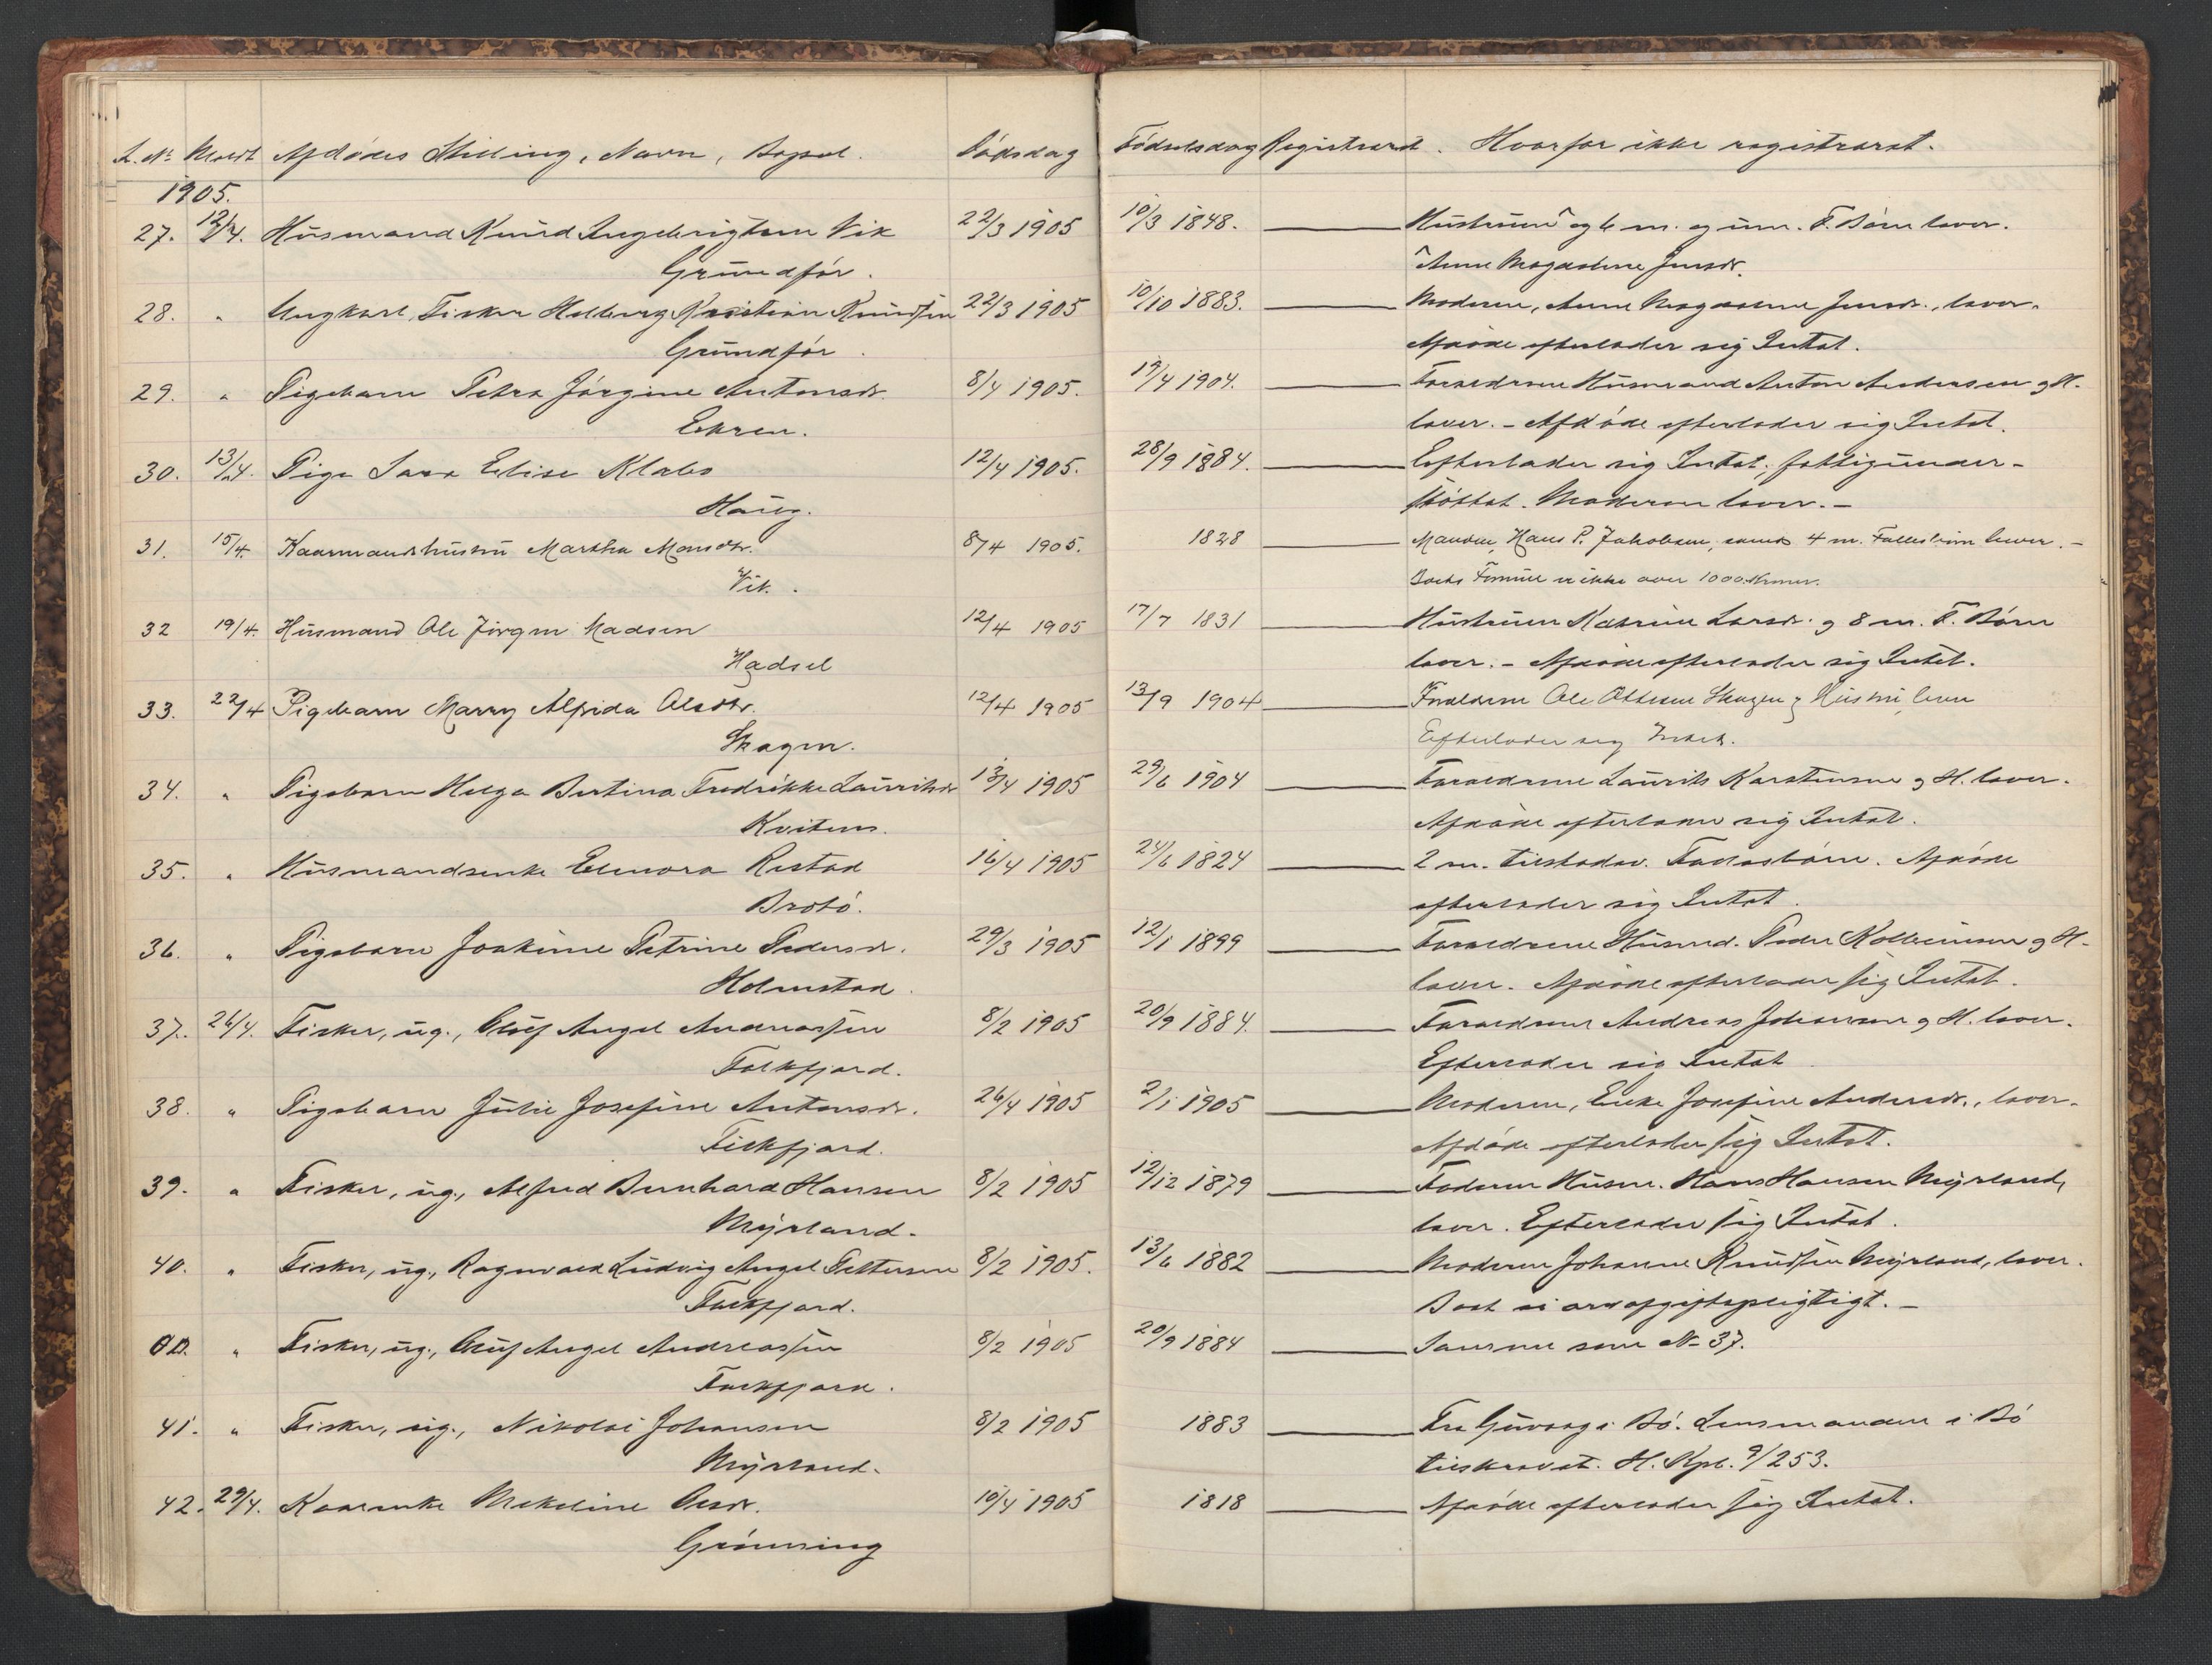 L. No Meldt Afdødes Stilling, Navn, Bopæl. Dødsdag Fødselsdag Registreret. Hvorfor ikke registreret.
1905.
27. 12/4. Husmand Knud Ingebrigtsen Vik 22/3 1905 10/3 1848. Hustruen og 6 m. og um. F. Børn lever.
Grundfør. Anne Magdalene Jensdr.
28. " Ungkarl, Fisker Hedberg Kristian Knudsen 22/3 1905 10/10 1883. Moderen, Anne Magdalene Jensdr., lever.
Grundfør. Afdøde efterlader sig Intet.
29. " Pigebarn Petra Jørgine Antonsdr. 8/4 1905. 19/4 1904. Forældrene Husmand Anton Andersen og H.
Ekren. lever. - Afdøde efterlader sig Intet.
30. 13/4. Pige Sara Elise Klabo 12/4 1905. 28/9 1884. Efterlader sig Intet; fattigunder-
Haug. støttet. Moderen lever. -
31. 15/4. Kaarmandshustru Martha Monsdtr. 8/4 1905. 1828 Manden, Hans P. Jakobsen, samt 4 m. Fællesbørn lever. -
Vik. Boets Formue er ikke over 1000 Kroner.
32 19/4. Husmand Ole Jørgen Madsen 12/4 1905 17/7 1831 Hustruen Katrine Larsdr. og 8 m. F. Børn
Hadsel lever. - Afdøde efterlader sig Intet.
33. 22/4 Pigebarn Marry Alfida Olsdtr. 12/4 1905 13/9 1904 Forældrene Ole Ottesen Skagen og Hustru lever
Skagen. Efterlader sig Intet.
34. " Pigebarn Helga Bertina Fredrikke Lauritsdr 13/4 1905 29/6 1904 Forældrene Laurits Karstensen og H. lever.
Kvitnes. Afdøde efterlader sig Intet.
35. " Husmandsenke Elenora Restad 16/4 1905 24/6 1824 2 m. tilstedev. Fællesbørn. Afdøde
Brotø. efterlader sig Intet.
36. " Pigebarn Joakime Petrine Pedersdr. 29/3 1905 12/1 1899 Forældrene Husmd. Peder Kolbeinsen og H.
Holmstad. lever. Afdøde efterlader sig Intet.
37. 26/4. Fisker, ug., Oluf Angel Andreassen 8/2 1905 20/9 1884. Forældrene Andreas Johansen og H. lever.
Falkfjord. Efterlader sig Intet
38. " Pigebarn Julie Josefine Antonsdr. 26/4 1905 2/1 1905 Moderen, Enke Josefine Andersdr., lever.
Falkfjord. Afdøde efterlader sig Intet.
39. " Fisker, ug., Alfred Bernhard Hansen 8/2 1905 12/12 1879 Faderen Husm. Hans Hansen Myrland,
Myrland. lever. Efterlader sig Intet.
40. " Fisker, ug., Ragnvald Ludvig Angel Pettersen 8/2 1905. 13/6 1882 Moderen Johanne Knudsen Myrland, lever.
Falkfjord. Boet ei arveafgiftspligtigt. -
" Fisker, ug., Oluf Angel Andreassen 8/2 1905 20/9 1884 Samme som No 37.
Falkfjord.
41. " Fisker, ug., Nikolai Johansen 8/2 1905 1883 Fra Guvaag i Bø. Lensmanden i Bø
Myrland. tilskrevet. H. Kpb. 9/253.
42. 29/4. Kaarenke Mekeline Olsdr. 10/4 1905 1818 Afdøde efterlader sig Intet.
Grønning